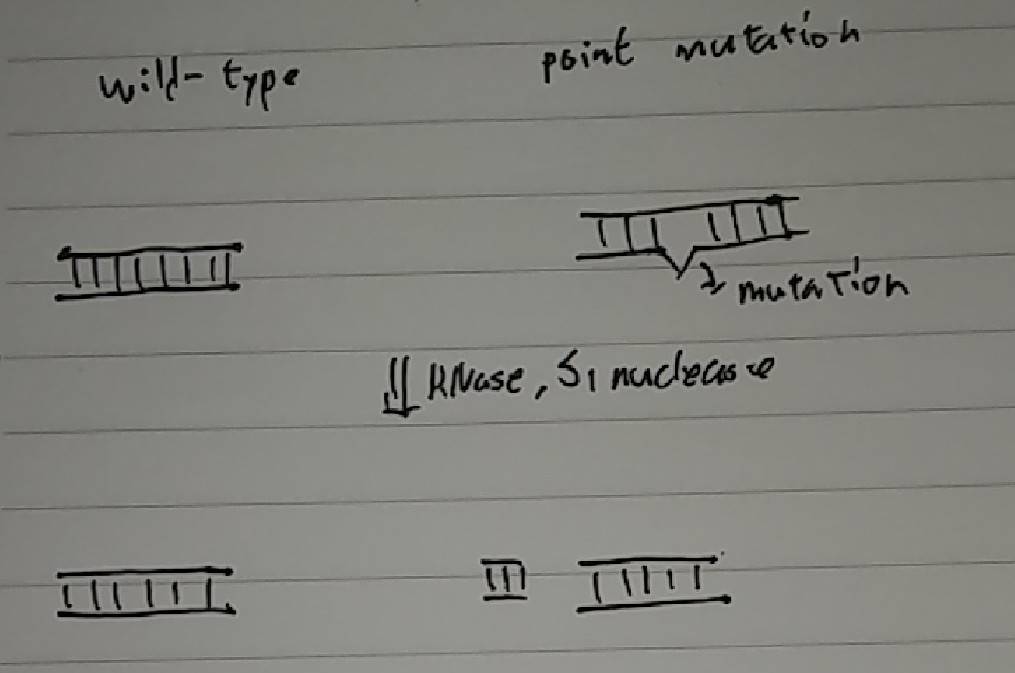 wild-type
point mutation
mutation
RNase, S1 nuclease